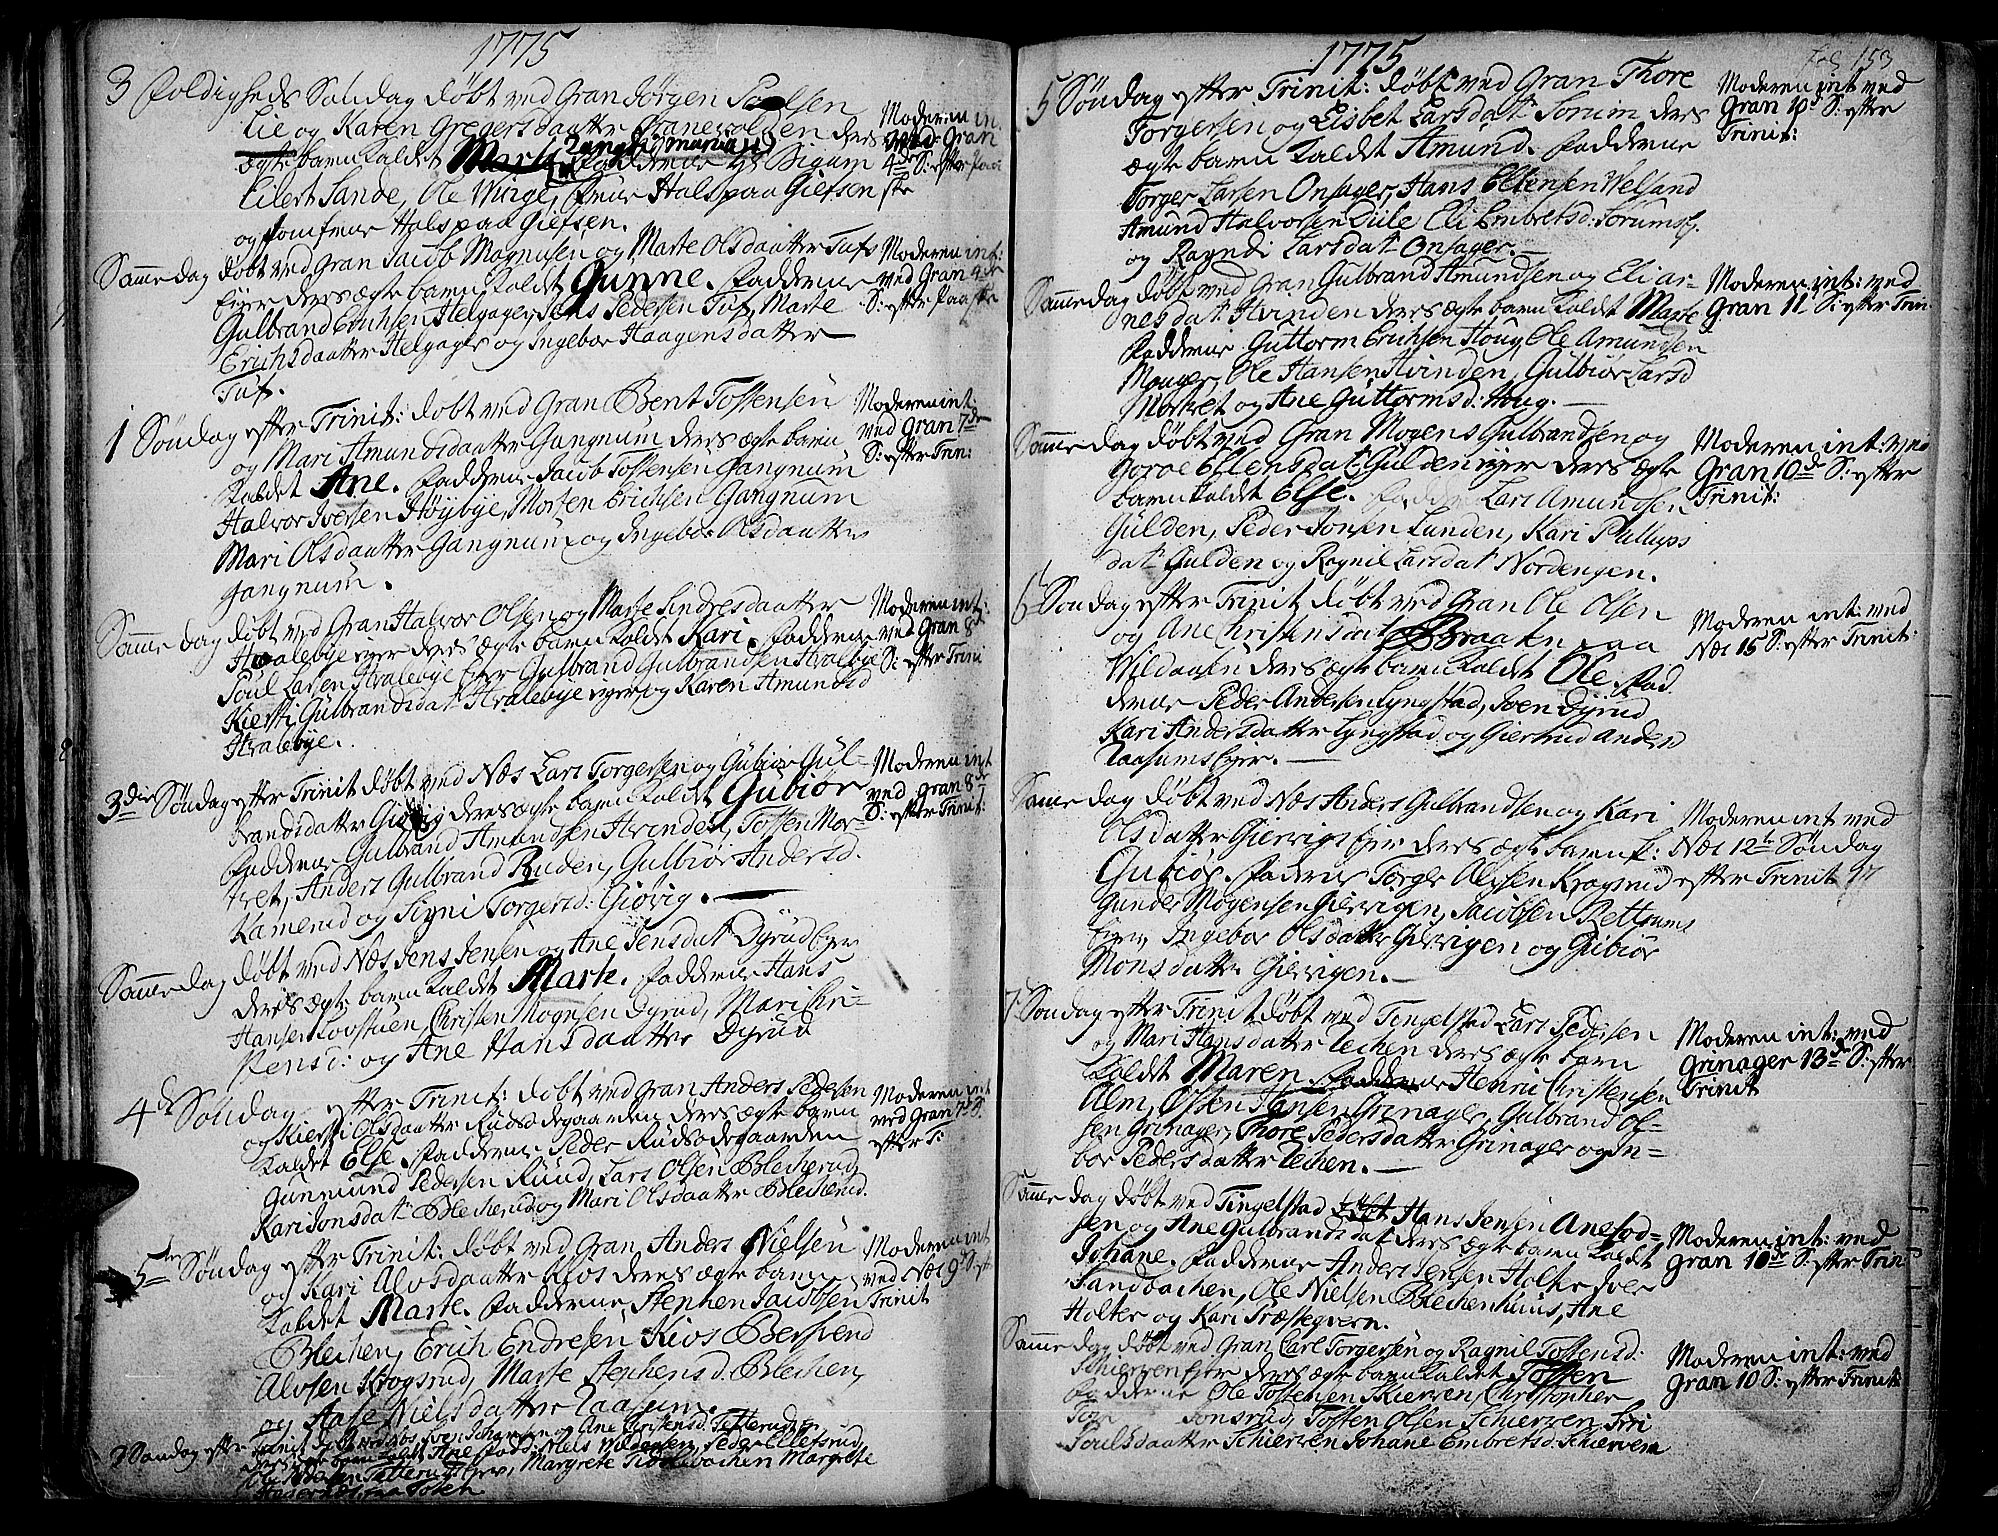 1775
3 foldigheds Søndag døbt ved Gran Jørgen Poelsen
Lie og Karen Gregersdaatter Stanevolden deres
ægte barn kaldet Marte Fadderne
Eilert Sande, Ole Wirge, Hals paa Giefsen
og Jomfrue Hals paa Giefsen.
Moderen in
ved Gran
4de S: efter Paa
ske
Samme dag døbt ved Gran Jacob Magnusen og Marte Olsdaatter Tufs
Eyer deres ægte barn kaldet Gunne. Fadderne
Gulbrand Erichsen Helgager, Jens Pedersen Tuf, Marte
Erichsdaatter Helgager og Ingebor Haagensdatter
Tuf.
Moderen int:
ved Gran 4de
S: efter Paaske
1 Søndag efter Trinit: døbt ved Gran Bent Tostensen
og Mari Amundsdaatter Gangnum deres ægte barn
kaldet Ane. Fadderne Jacob Tostensen Gangnum
Halvor Iversen Høybye, Morten Erichsen Gangnum
Mari Olsdaatter Gangnum og Ingebor Olsdaatter
Gangnum.
Moderen int:
ved Gran 7de
S: efter Trin:
Samme dag døbt ved Gran Halvor Olsen og Marte Sindresdaatter
Hvalebye eyer deres ægte barn kaldet Kari. Fadderne
Poul Larsen Hvalebye Eyer Gulbrand Gulbrandsen Hvalebye
Kiersti Gulbrandsdat Hvalebye eyer og Karen Amundsd
Hvalebye.
Moderen int:
ved Gran 8de
S: efter Trini
3die Søndag efter Trinit døbt ved Næs Lars Torgersen og Gubiør Gul-
brandsdatter Giøvig deres ægte barn kaldet Gubiør
Fadderne Gulbrand Amundsen Hvinden, Tosten Mor-
tvet, Anders Gulbrand Ruden, Gulbiør Andersd.
Kamerud og Signi Torgersd: Giøvig.
Moderen int
ved Gran 8de
S: efter Trinit:
Samme dag døbt ved Næs Jens Jensen og Ane Jensdat Dyrud Eyer
deres ægte barn kaldet Marte. Fadderne Hans
Hansen Lovstuen, Christen Mognsen Dyrud, Mari Chri-
stensd: og Ane Hansdaatter Dyrud
4de Søndag efter Trinit: døbt ved Gran Anders Pedersen
og Kiersti Olsdaatter Rudsødegaarden deres ægte barn
kaldet Else. Fadderne Peder Rudsødegaarden
Gunmund Pedersen Ruud, Lars Olsen Blecherud
Kari Jonsdat Blecherud og Mari Olsdaatter Blecherud.
Moderen int
ved Gran 7de S.
efter T:
5te Søndag efter Trinit: døbt ved Gran Anders Nielsen
og Kari Alvsdaatter Kios deres ægte barn
kaldet Marte. Fadderne Stephen Jacobsen
Blechen, Erich Endresen Kios Bersvend
Alvsen Krogsrud, Marte Stephensd. Blechen,
og Aase Nielsdatter Raasum.
Moderen int
ved Næs 9de S: eft
Trinit
3 Søndag efter Trinit døbt Sven Johansen og Ane Christensd. Tetterud
deres ægte barn kaldt Ane Fadd: Niels Peder Ellefsrud
Tetterud Eyer, Margrete Margrete
paa Toten.
1775
Fol 153
5 Søndag efter Trinit: døbt ved Gran Thore
Torgersen og Lisbet Larsdat Sorum deres
ægte barn kaldet Amund. Fadderne
Torger Larsen Onsager, Hans Eltensen Welsand
Amund Halvorsen Dile Eli Embretsd: Sørums.
og Ragndi Larsdat Onsager.
Moderen int ved
Gran 10de S: efter
Trinit:
Samme dag døbt ved Gran Gulbrand Amundsen og Eli ar-
nesdat: Hvinden deres ægte barn kaldet Marte
Fadderne Guttorm Erichsen Houg, Ole Amundsen
Monger, Ole Hansen Hvinden, Gulbiør Larsd
Morket og Ane Guttormsd: Houg.
Moderen int: ved
Gran 11 S: efter Trin:
Samme dag døbt ved Gran Mogens Gulbrandsen og
Goroe Eltensdat Gulden eyer deres ægte
barn kaldet Else. Fadderne Lars Amundsen
Gulden, Peder Jonsen Lunden, Kari Phillups
dat Gulden og Ragnil Larsdat Nordengen.
Moderen int: ved
Gran 10de S: efter
Trinit:
6te Søndag efter Trinit døbt ved Gran Ole Olsen
og Ane Christensdat Braaten paa
Wildaasen deres ægte barn kaldet Ole. Fad.
derne Peder Andersen Lyngstad, Iven Dyrud
Kari Andersdatter Lyngstad og Giertrud Anders
Raasums Eyer.
Moderen int: ved
Næs 15 S: efter Trinit:
Samme dag døbt ved Næs Anders Gulbrandsen og Kari
Olsdatter Giervigs Eyer deres ægte barn k:
Gubiør. Fadderne Torger Olesen Krogsrud
Gunder Mogensen Giervigen, Jacobsen Rettrums
Eyer, Ingebor Olsdatter Giervigen og Gubiør
Monsdatter Giervigen.
Moderen int ved
Næs 12te Søndag
efter Trinit
7 Søndag efter Trinit døbt ved Tingelstad Lars Pedersen
og Mari Hansdatter Lechen deres ægte barn
kaldet Maren Fadderne Henric Christensen
Alm, Olsen Hansen Grinager, Gulbrand Ol-
sen Grinager, Thore Pedersdatter Grinager og In-
bor Pedersdatter Lechen.
Moderen int: ved
Grinager 13de S: efter
Trinit
Samme dag døbt ved Tingelstad døbt Hans Jensen
sen og Ane Gulbrandsdat deres ægte barn kaldt
Johane. Fadderne Anders Jensen Holte Iver
Sandbachen, Ole Nielsen Blechenhuus, Ane
Holter og Kari Præsteqvern.
Moderen int: ved
Gran 10de S: efter Trin:
Samme dag døbt ved Gran Carl Torgersen og Ragnil Tostensd:
Schierven Eyer deres ægte barn kaldet Tosten
Fadderne Ole Tostensen Schierven, Christopher
Jonsrud, Tosten Olsen Schierven Siri
Poulsdaatter Schierven Johane Embretsd: Schierven
Moderen int: ved
Gran 10 S: efter Trinit: